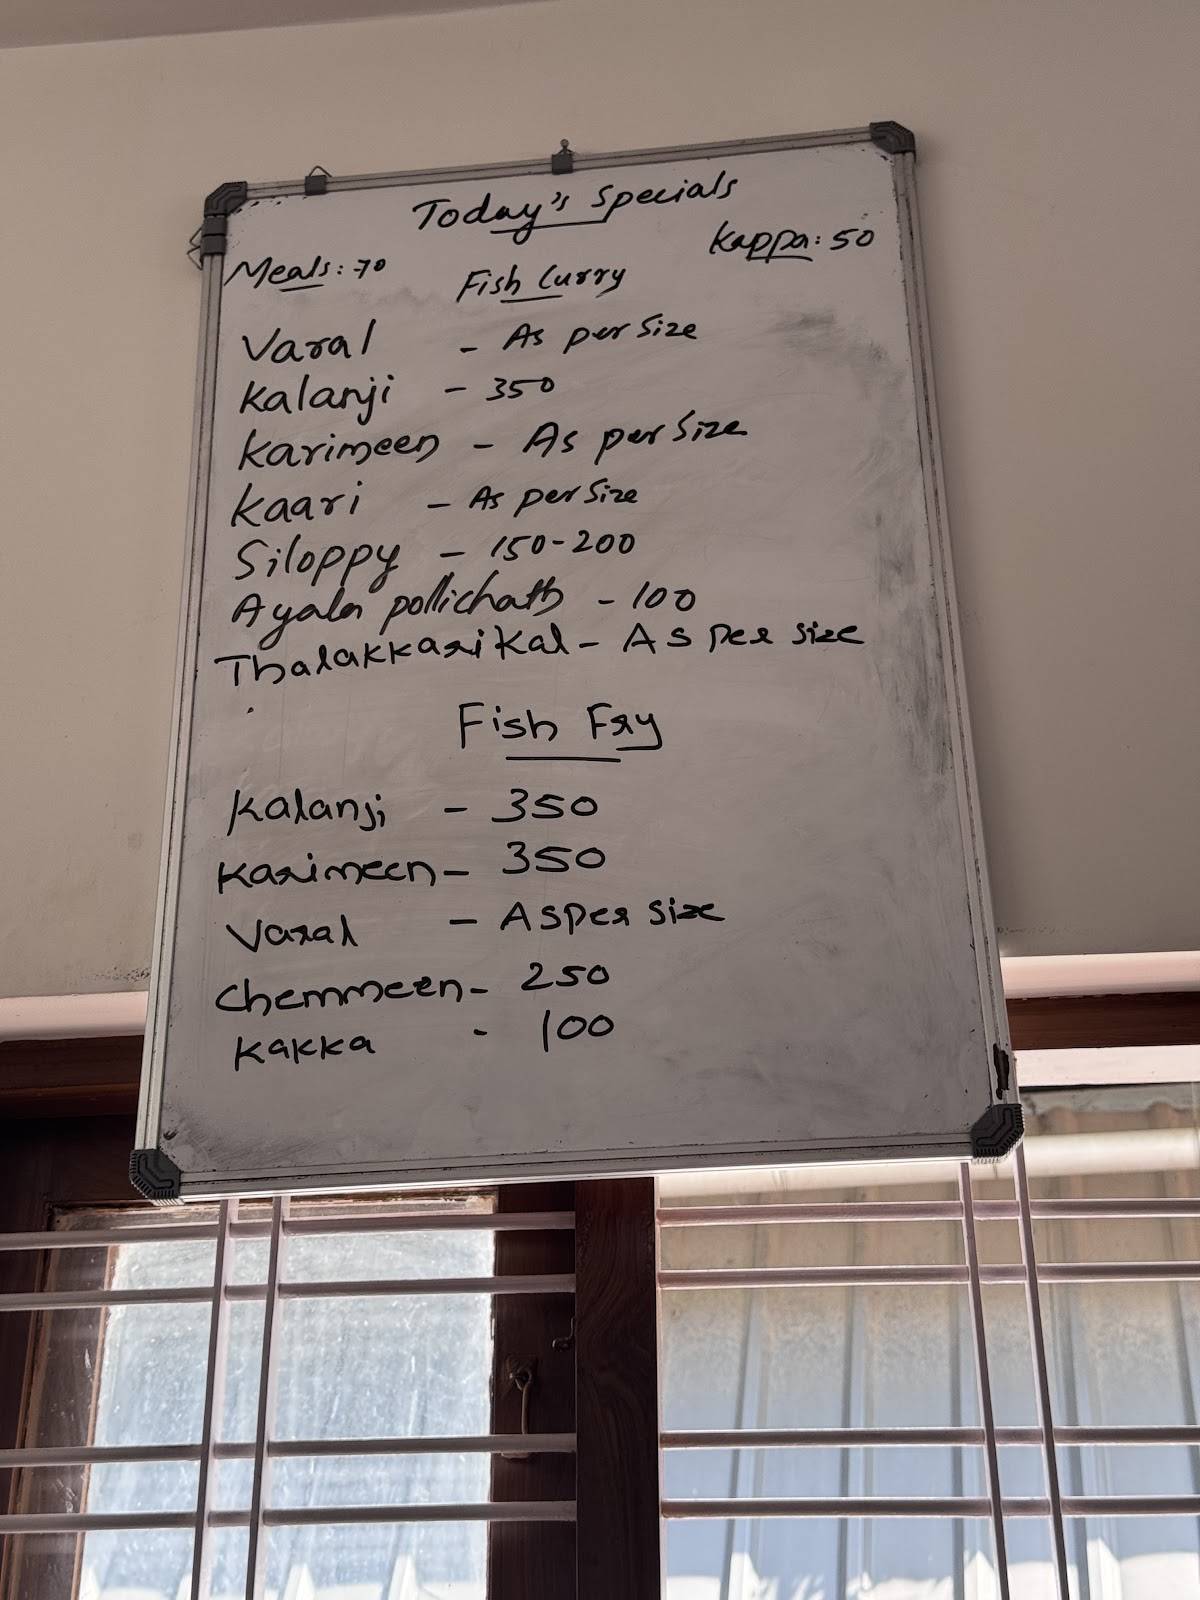 Today's Specials
Meals: 70
Kappa: 50
Fish Curry
Varal - As per Size
Kalanji - 350
Karimeen - As per Size
Kaari - As per Size
Siloppy - 150-200
Ayala pollichath - 100
Thalakkarikal - As Per Size
Fish Fry
Kalanji - 350
Karimeen - 350
Varal - As Per Size
Chemmeen - 250
Kakka - 100